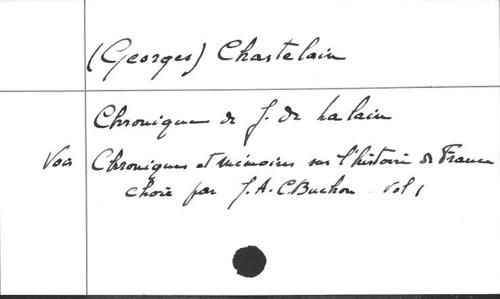 (Georges) Chastelain
Chronique de J. de Lalain
Voir Chroniques et mémoires sur l'histoire de France
choix par J. A. C. Buchon. Vol 1